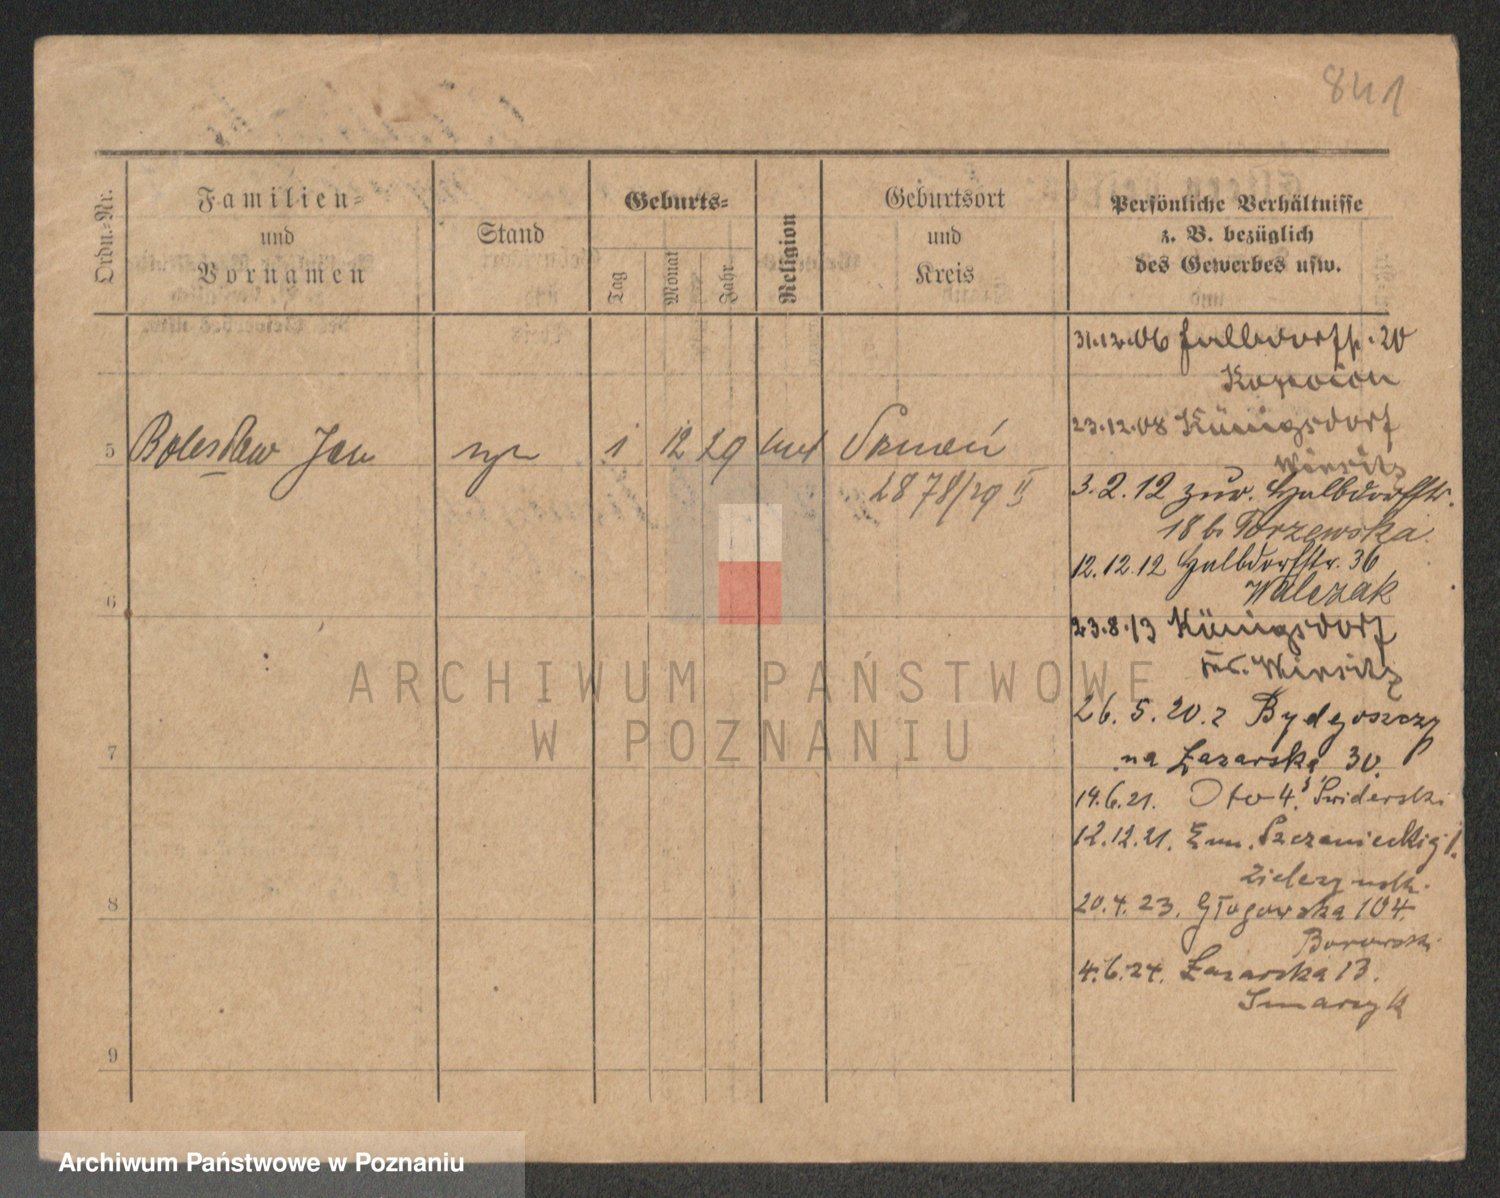 841
Ordn.-Nr.
Familien-
und
Vornamen
Stand
Geburts-
Tag
Monat
Jahr
Religion
Geburtsort
und
Kreis
Persönliche Verhältnisse
z. B. bezüglich
des Gewerbes usw.
31.12.06 Halbdorfstr. 20
23.12.08 Königsdorf
Wirsitz
5 Bolesław Jan syn 1 12 29 kat Poznań
2878/29 II
3.2.12 zur. Halbdorfstr.
18 b. Torzewska
12.12.12 Halbdorfstr. 36
Walczak
6
23.8.13 Königsdorf
Krs. Wirsitz
26.5.20. z Bydgoszczy
na Łazarska 30.
7
14.6.21. Otto 4. Świderski
12.12.21. Em. Sczanieckiej 1.
8
20.4.23. Głogowska 104.
Borowski
4.6.24. Łazarska 13.
Smarzyk
9
ARCHIWUM PAŃSTWOWE
W POZNANIU
Archiwum Państwowe w Poznaniu